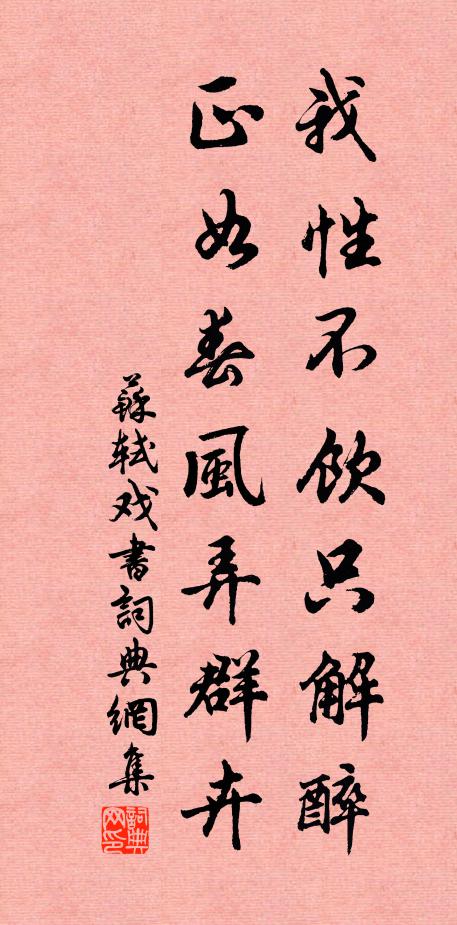 我性不飲只解醉
正如春風弄群卉
蘇軾戏書詞典網集
詞典网印